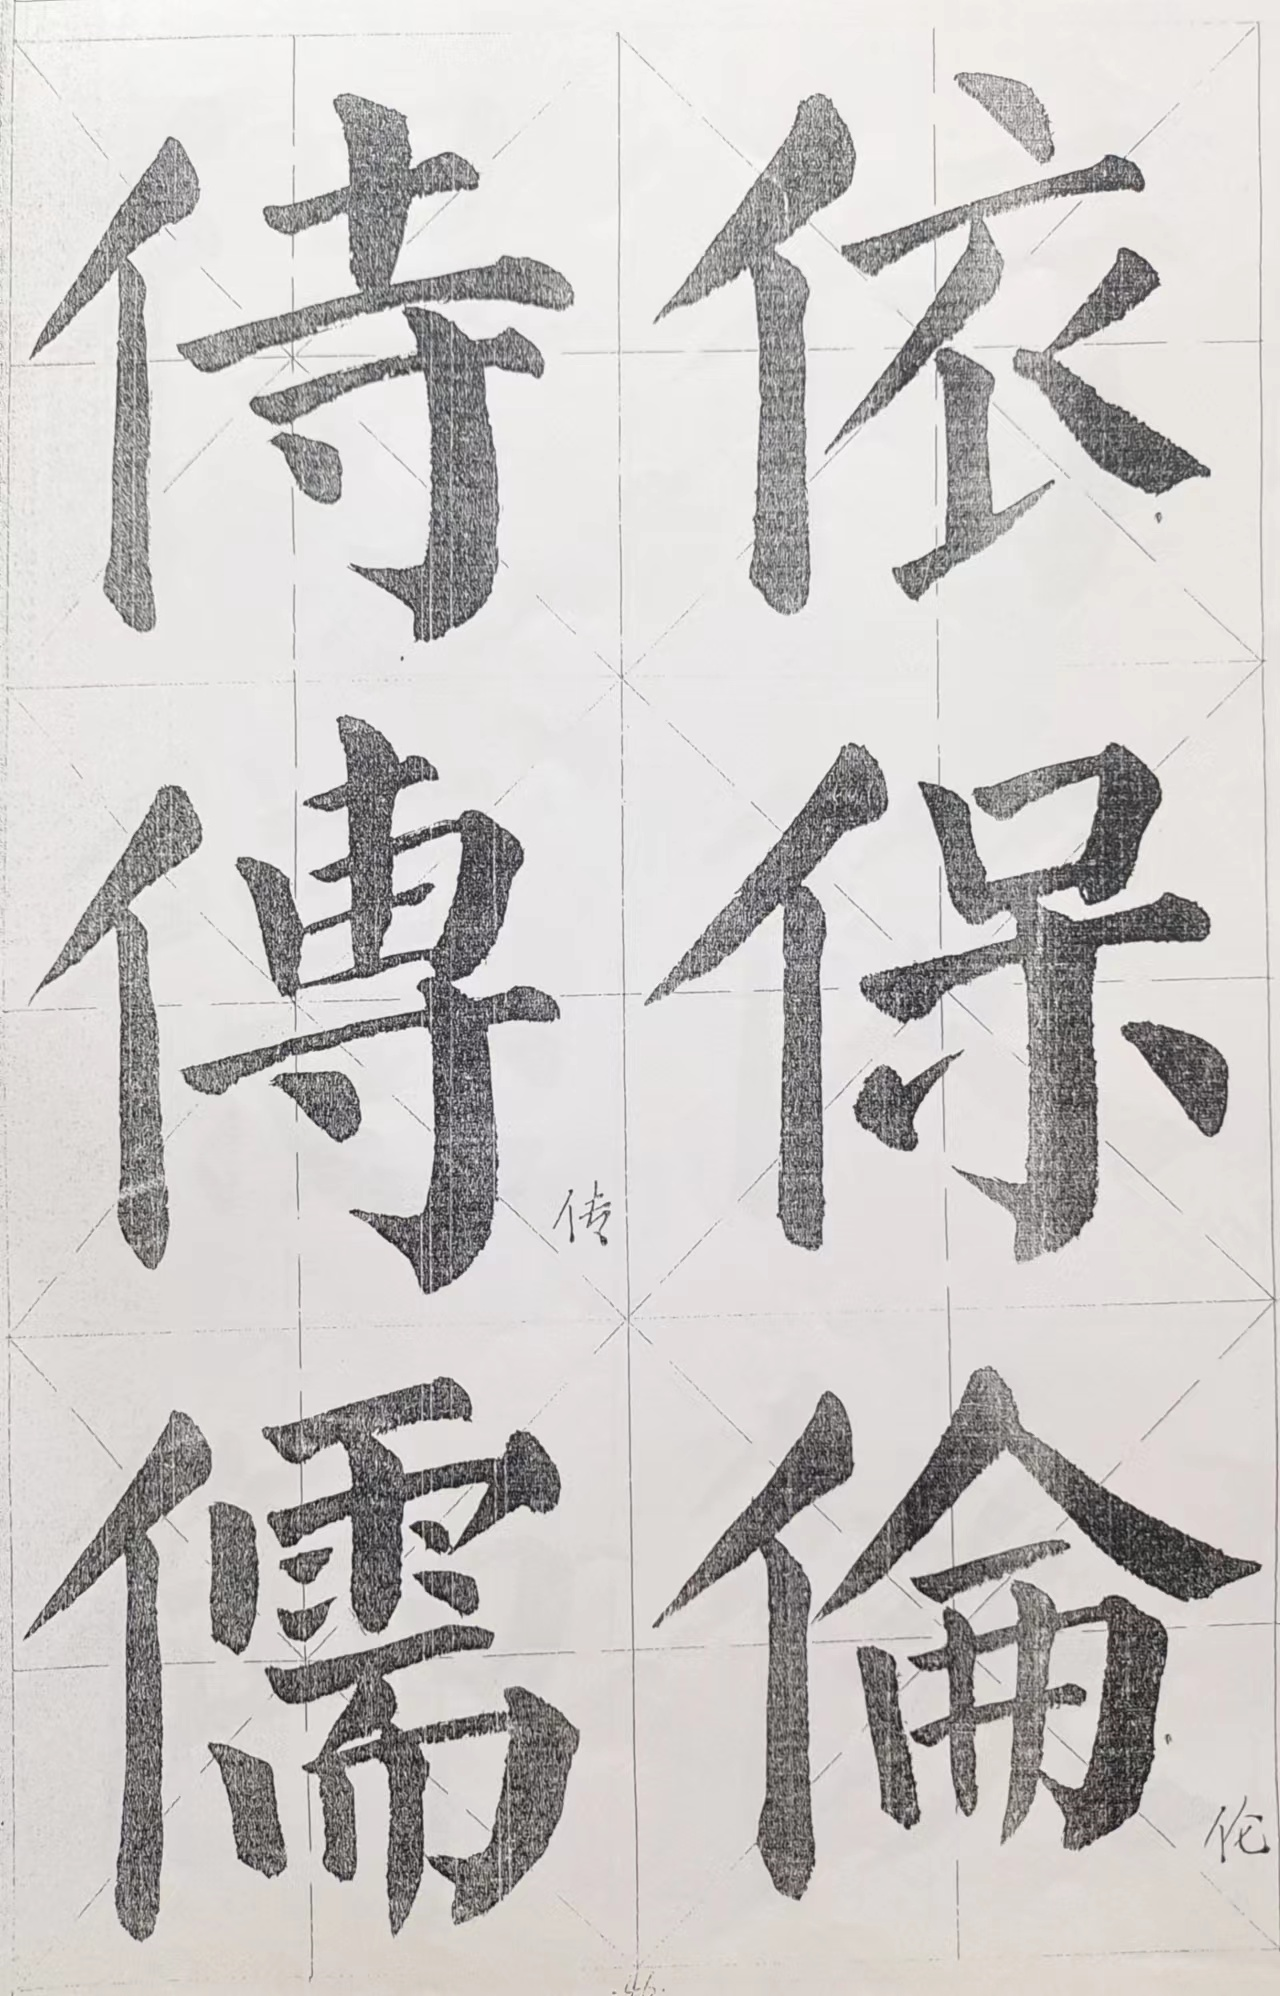 依
保
倫
伦
侍
傳
传
儒
·46·